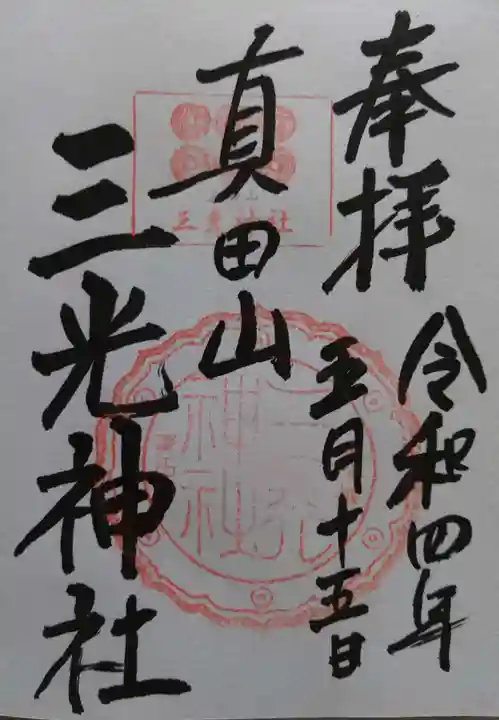 奉拝
令和四年
五月十五日
真田山
三光神社
三光神社
三光
神社